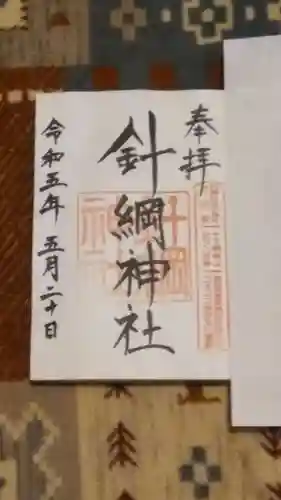 奉拝
針綱神社
令和五年 五月二十日